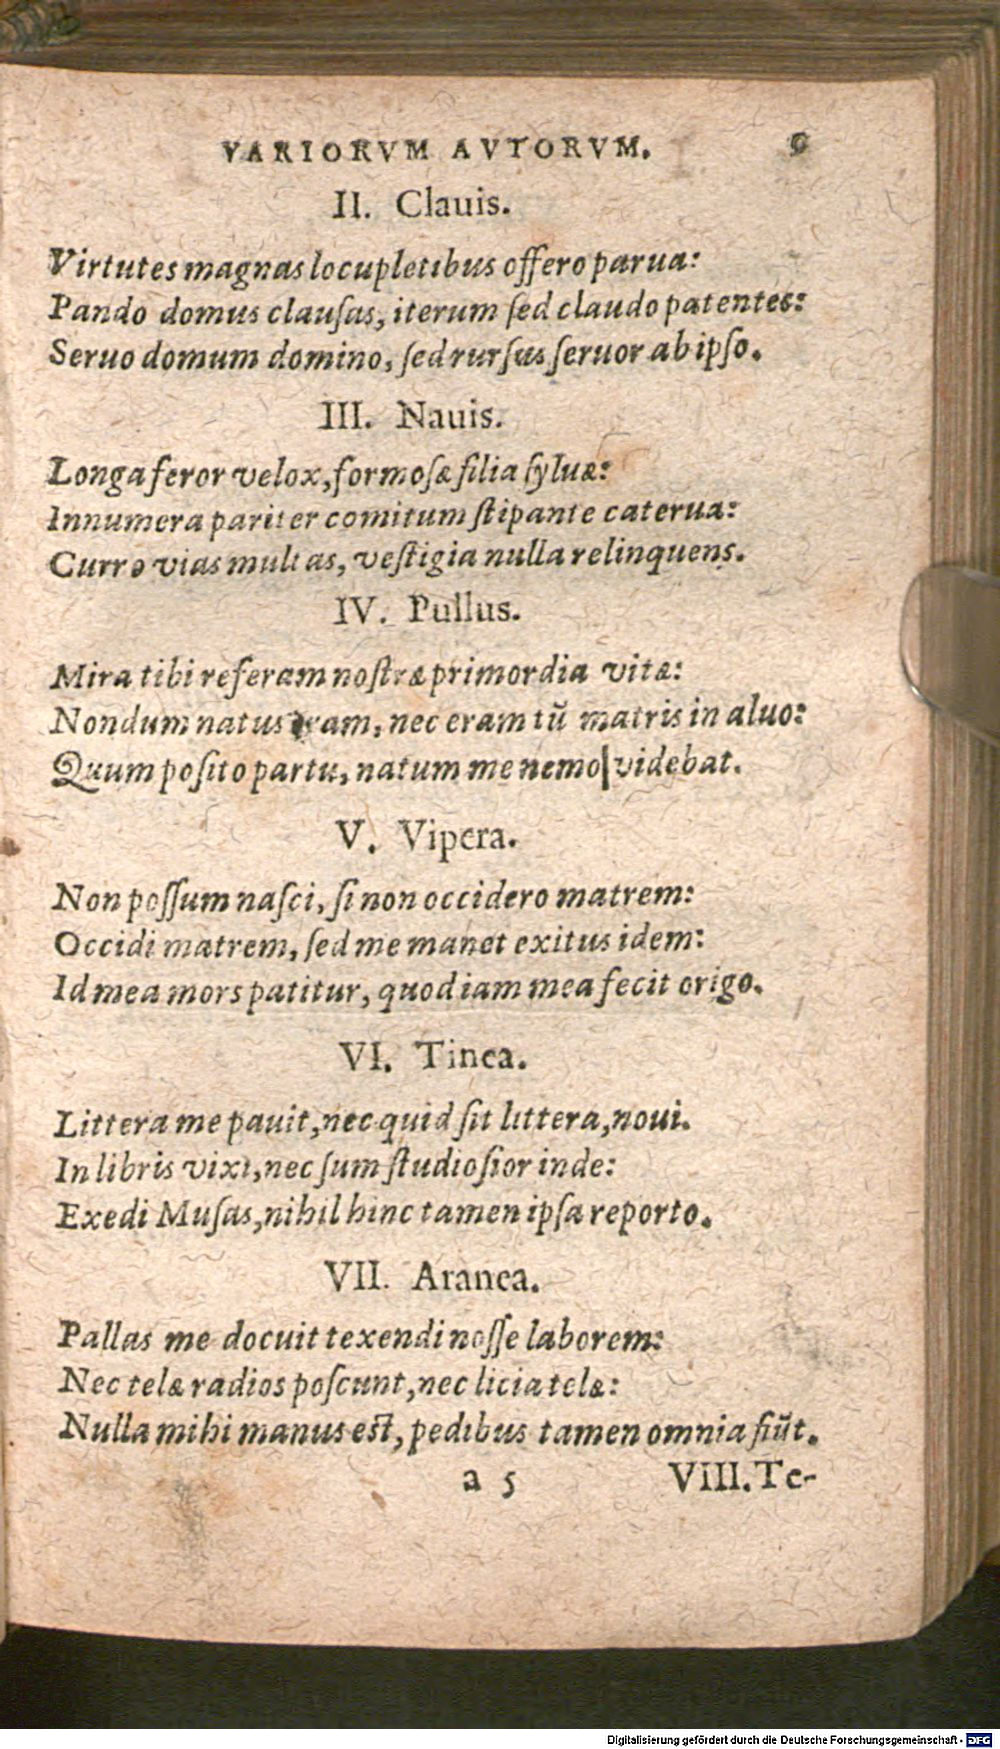 VARIORVM AVTORVM. 9
II. Clauis.
Virtutes magnas locupletibus offero parua:
Pando domus clauſas, iterum ſed claudo patentes:
Seruo domum domino, ſed rurſus ſeruor ab ipſo.
III. Nauis.
Longa feror velox, formoſæ filia ſyluæ:
Innumera pariter comitum ſtipante caterua:
Curro vias multas, veſtigia nulla relinquens.
IV. Pullus.
Mira tibi referam noſtræ primordia vitæ:
Nondum natus eram, nec eram tū matris in aluo:
Quum poſito partu, natum me nemo videbat.
V. Vipera.
Non poſſum naſci, ſi non occidero matrem:
Occidi matrem, ſed me manet exitus idem:
Id mea mors patitur, quod iam mea fecit origo.
VI. Tinea.
Littera me pauit, nec quid ſit littera, noui.
In libris vixi, nec ſum ſtudioſior inde:
Exedi Muſas, nihil hinc tamen ipſa reporto.
VII. Aranea.
Pallas me docuit texendi noſſe laborem:
Nec telæ radios poſcunt, nec licia telæ:
Nulla mihi manus eſt, pedibus tamen omnia fiūt.
a 5 VIII. Te-
Digitalisierung gefördert durch die Deutsche Forschungsgemeinschaft - DFG